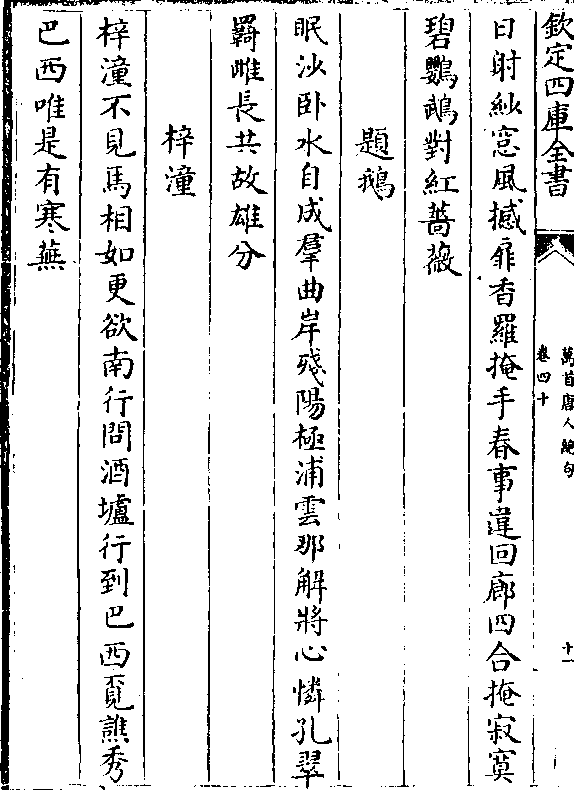 欽定四庫全書
萬首唐人絶句
卷四十
十一
日射紗窓風撼扉香羅掩手春事違回廊四合掩寂寞
碧鸚鵡對紅薔薇
題鵝
眠沙卧水自成羣曲岸殘陽極浦雲那解將心憐孔翠
羇雌長共故雄分
梓潼
梓潼不見馬相如更欲南行問酒壚行到巴西覓譙秀
巴西唯是有寒蕪